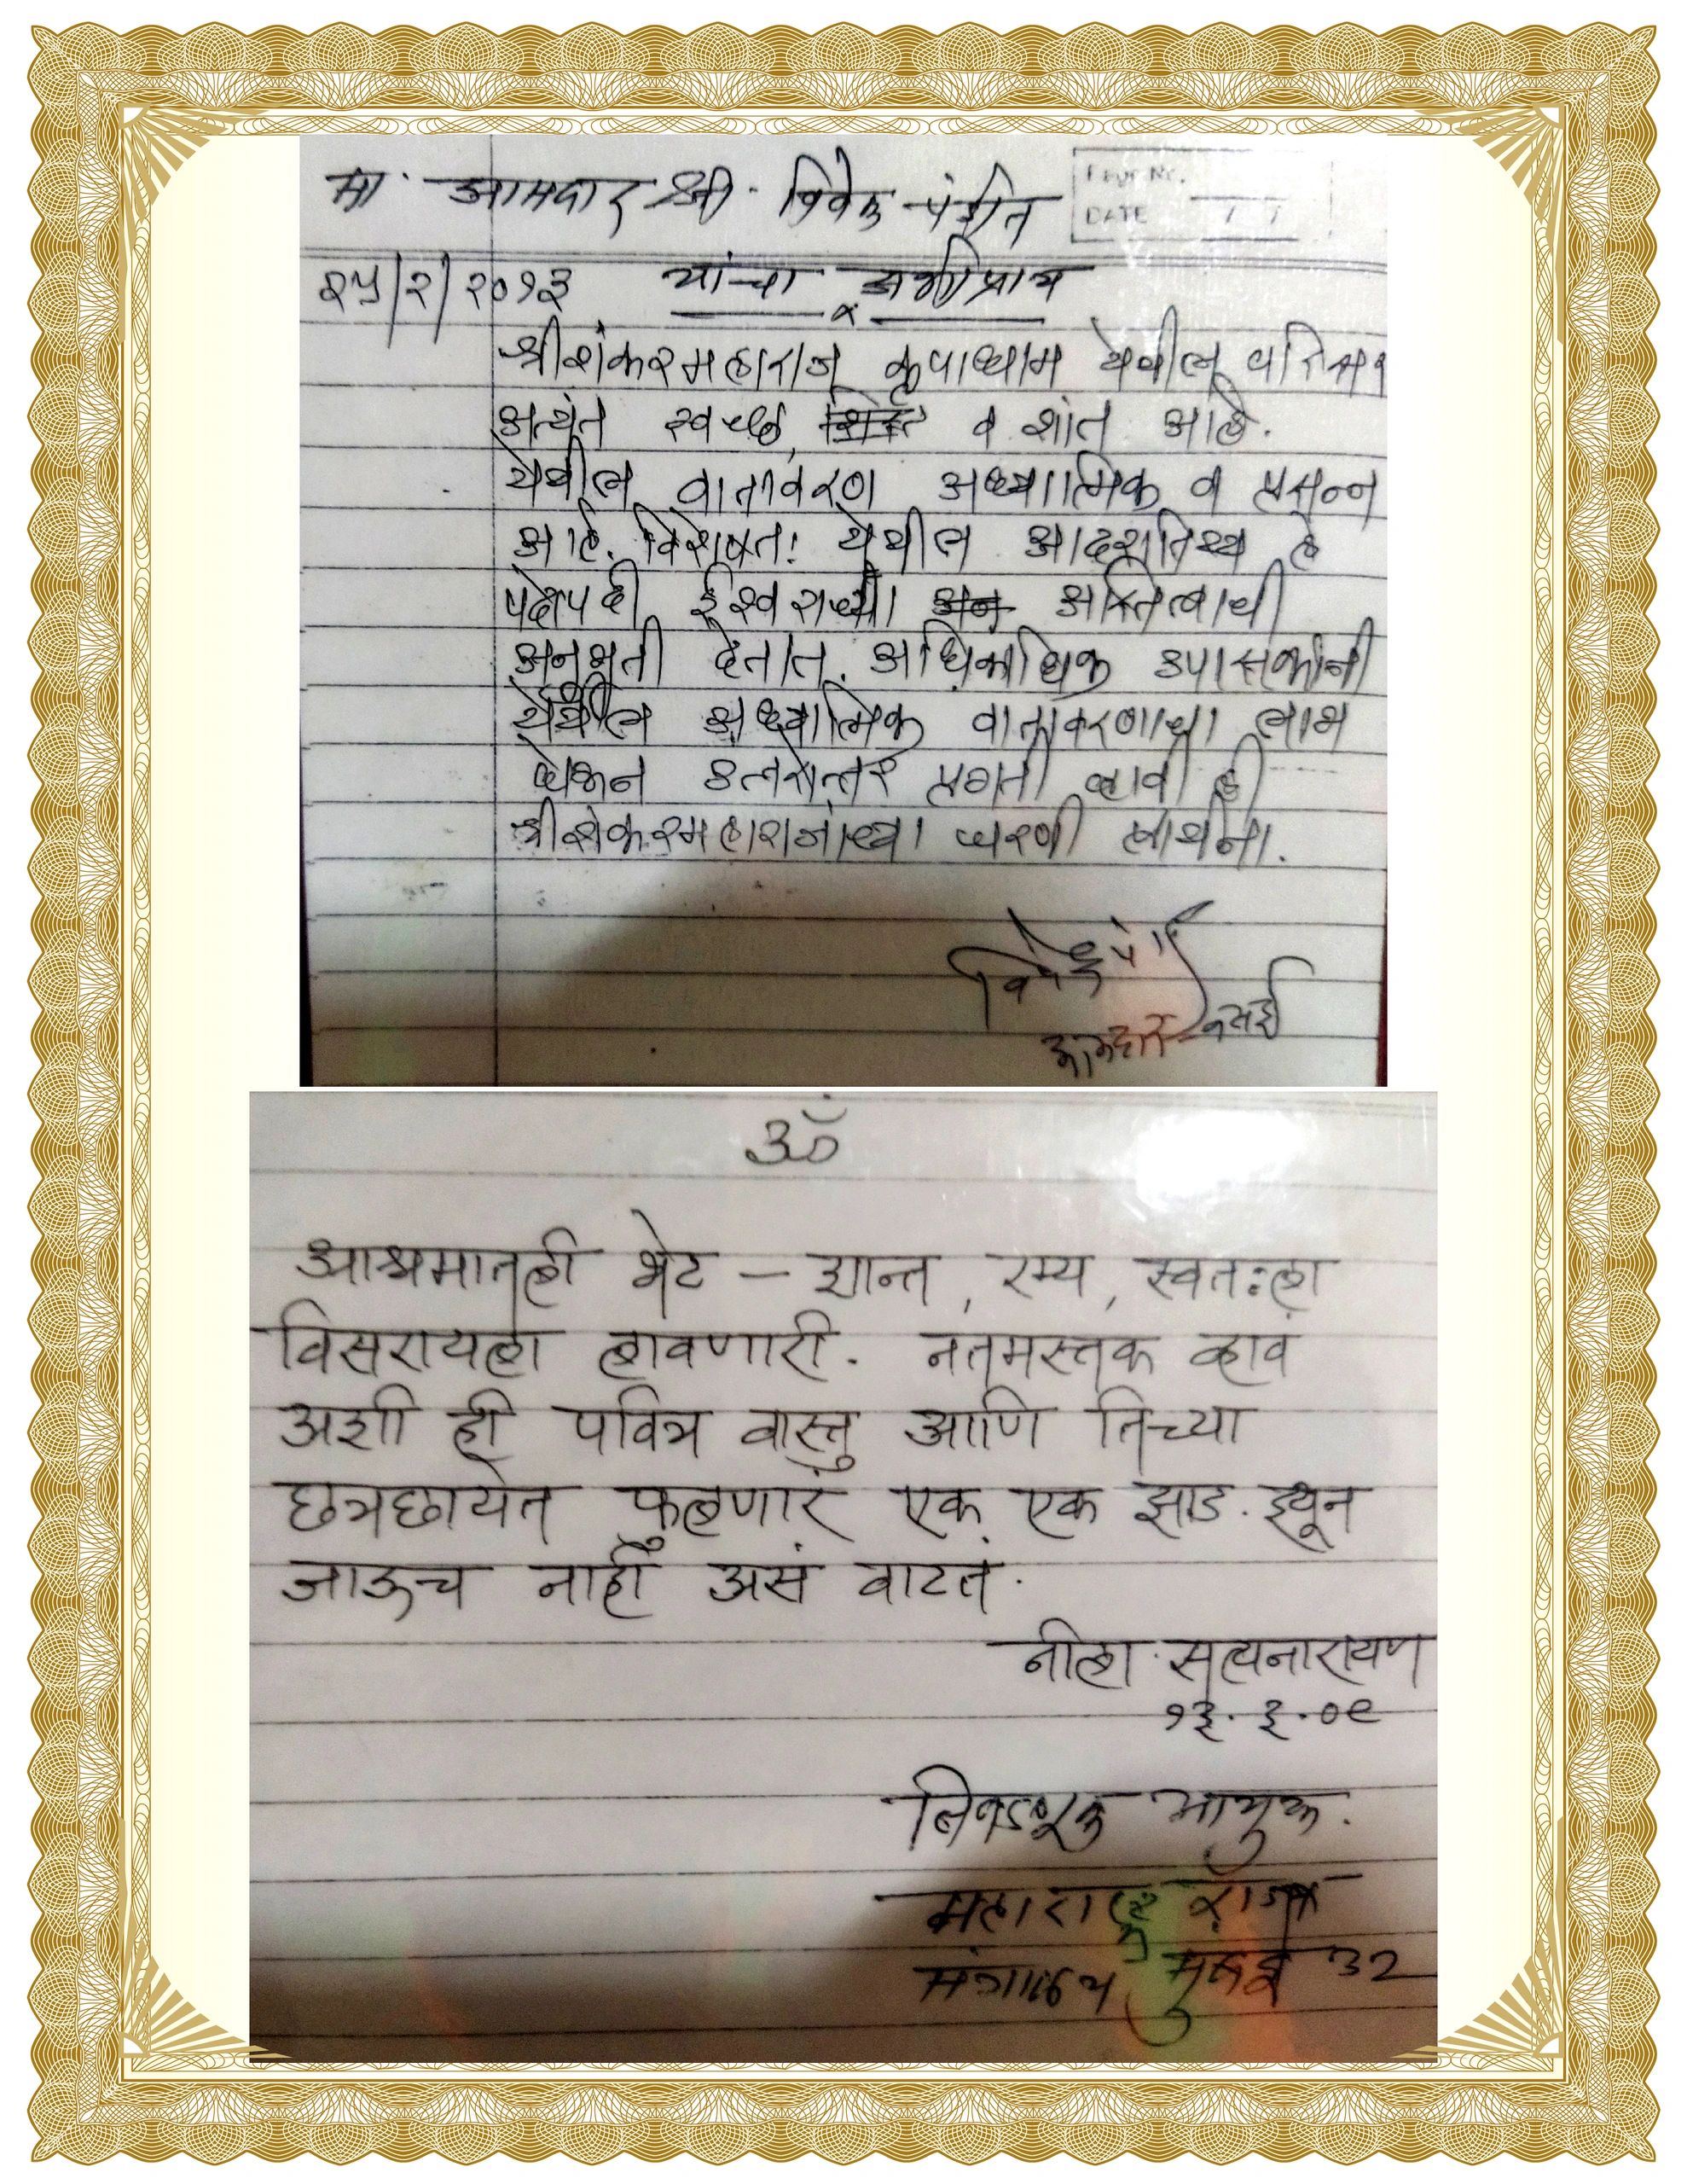 मा. आमदार श्री. विवेक पंडीत
PAGE NO.
DATE / /
२५/२/२०१३ यांचा अभीप्राय
श्रीशंकरमहाराज कृपाध्याम येथील परिसर
अत्यंत स्वच्छ, व शांत आहे.
येथील वातावरण अध्यात्मिक व प्रसन्न
आहे. विशेषतः येथील आदरातिथ्य हे
पदोपदी ईश्वराच्या अस्तित्वाची
अनुभूती देतात. अधिकाधिक उपासकांनी
येथील अध्यात्मिक वातावरणाचा लाभ
घेऊन उत्तरोत्तर प्रगती व्हावी ही
श्रीशंकरमहाराजांच्या चरणी प्रार्थना.
विवेक पं
आमदार वसई
ॐ
आश्रमातली भेट – शान्त, रम्य, स्वतःला
विसरायला लावणारी. नतमस्तक व्हावं
अशी ही पवित्र वास्तु आणि तिच्या
छत्रछायेत फुलणारं एक एक झाड. इथून
जाऊच नाही असं वाटतं.
नीला सत्यनारायण
१३.३.०९
निवडणूक आयुक्त.
महाराष्ट्र राज्य
मंत्रालय मुंबई 32